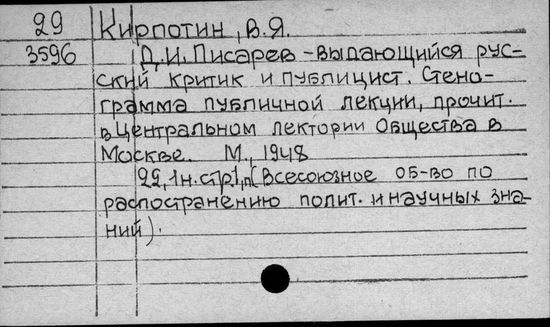 29 Кирпотин, В.Я.
3596 Д.И. Писарев - выдающийся рус-
ский критик и публицист. Стено-
грамма публичной лекции, прочит.
в Центральном лектории Общества в
Москве. М., 1948
22, 1н.стр., (Всесоюзное об-во по
распостранению полит. и научных зна-
ний).